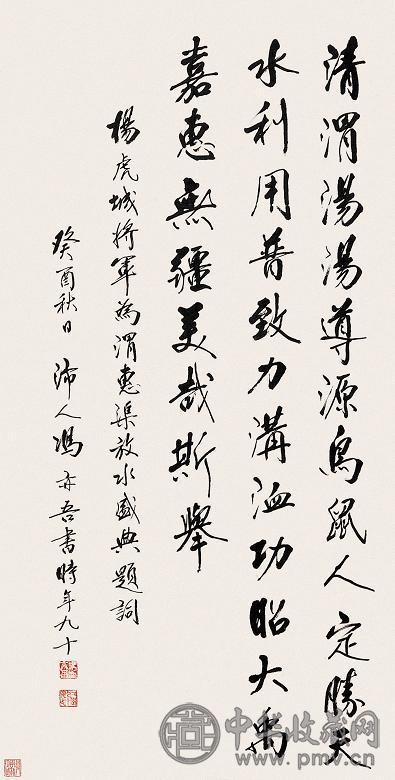 清渭湯湯導源鳥鼠人定勝天
水利用普致力溝洫功昭大禹
嘉惠無疆美哉斯舉
楊虎城將軍為渭惠渠放水盛典題詞
癸酉秋日 沛人馮亦吾書時年九十
中华收藏网